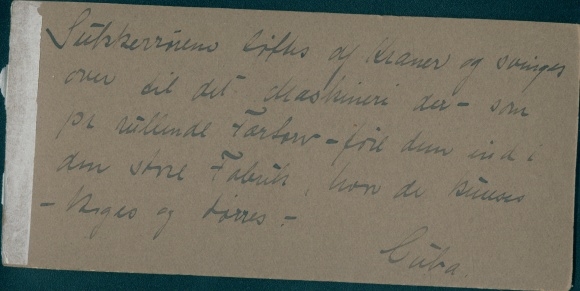 Sukkerrørene løftes af Kraner og svinges
over til det Maskineri der – som
pr rullende Fortorv –føre dem ind i
den store Fabrik, hvor de
– koges og tørres –
Cuba.